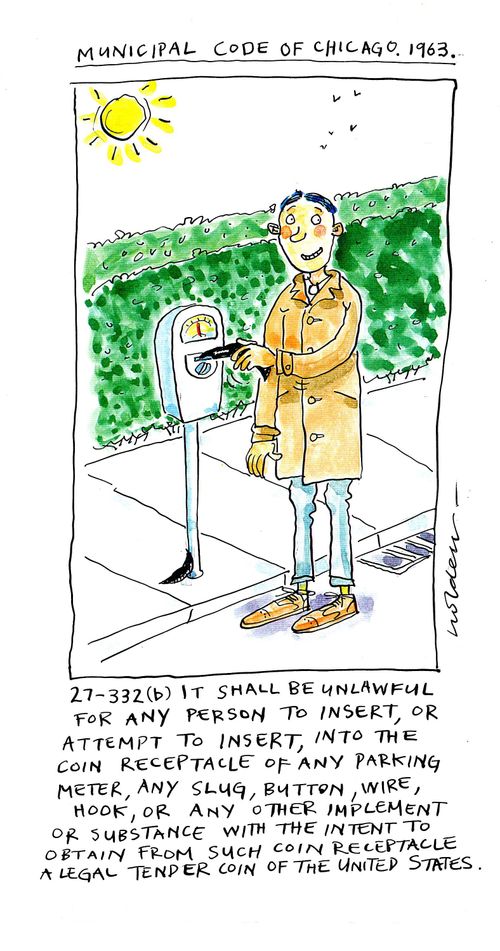 MUNICIPAL CODE OF CHICAGO. 1963.
holden
27-332(b) IT SHALL BE UNLAWFUL
FOR ANY PERSON TO INSERT, OR
ATTEMPT TO INSERT, INTO THE
COIN RECEPTACLE OF ANY PARKING
METER, ANY SLUG, BUTTON, WIRE,
HOOK, OR ANY OTHER IMPLEMENT
OR SUBSTANCE WITH THE INTENT TO
OBTAIN FROM SUCH COIN RECEPTACLE
A LEGAL TENDER COIN OF THE UNITED STATES.